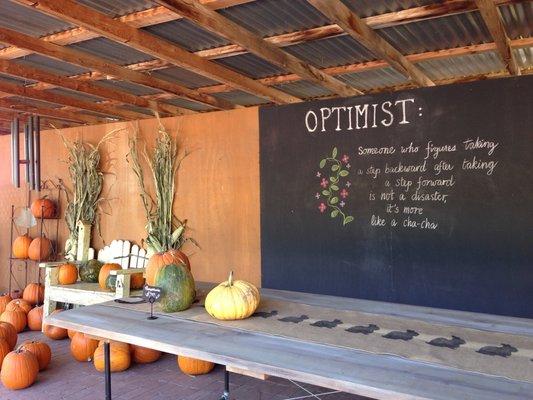 OPTIMIST:
Someone who figures taking
a step backward after taking
a step forward
is not a disaster,
it's more
like a cha-cha